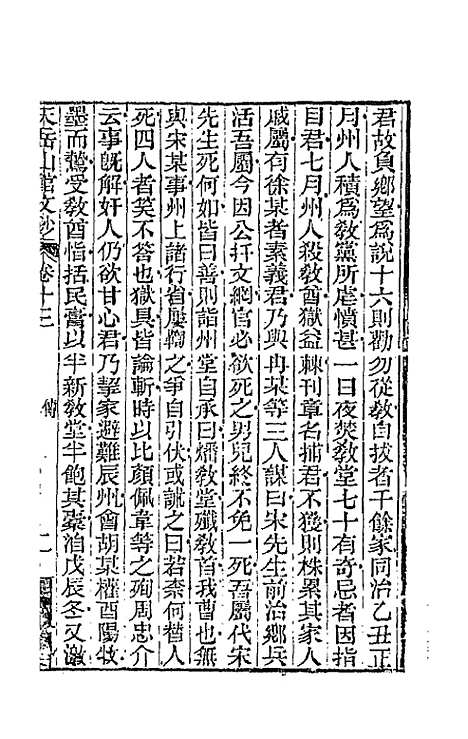 君故負鄉望爲說十六則勸勿從敎自拔者千餘家同治乙丑正
月州人積爲敎黨所虐憤甚一日夜焚敎堂七十有奇忌者因指
目君七月州人殺敎酋獄益棘刊章名捕君不獲則株累其家人
戚屬有徐某者素義君乃與冉某等三人謀曰宋先生前治鄉兵
活吾屬今因公扞文網官必欲死之男兒終不免一死吾屬代宋
先生死何如皆曰善則詣州堂自承曰燔敎堂殲敎酋我曹也無
與宋某事州上諸行省屢鞫之爭自引伏或訹之曰若柰何替人
死四人者笑不答也獄具皆論斬時以比顏佩韋等之殉周忠介
云事旣解奸人仍欲甘心君乃挈家避難辰州會胡某權酉陽牧
墨而鷙受敎酋恉括民膏以半新敎堂半飽其橐洎戊辰冬又激
天岳山館文鈔 卷十三 傳 二